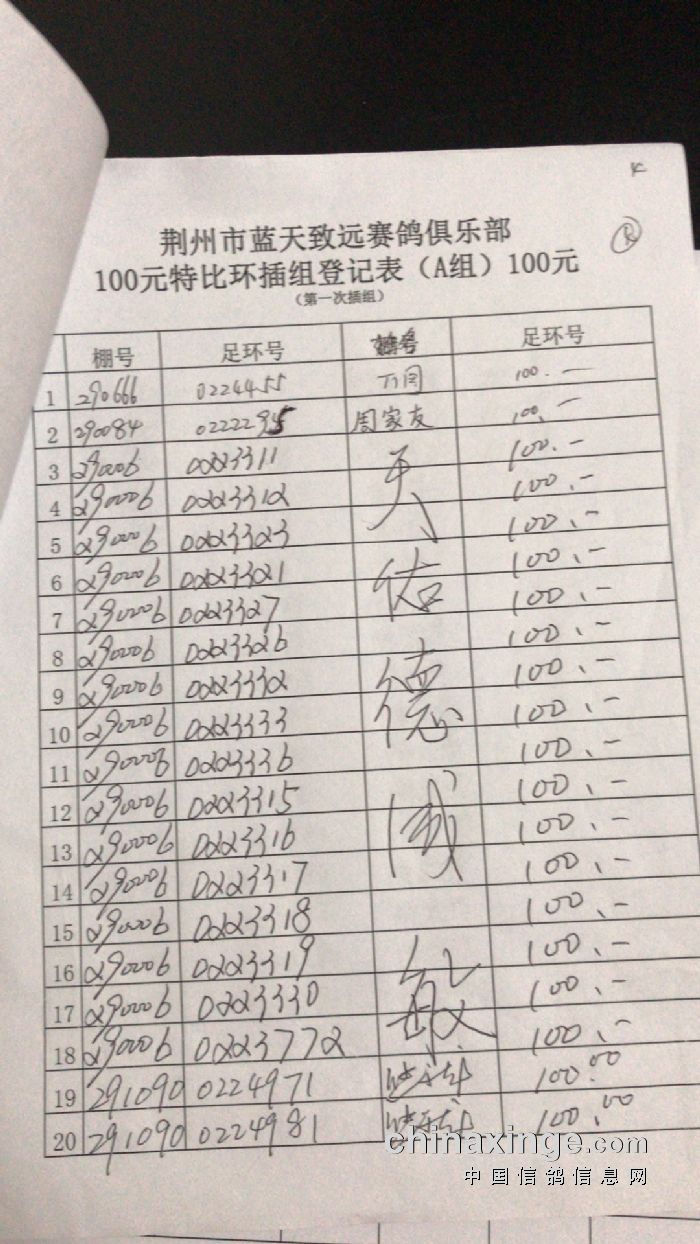 K
R
荆州市蓝天致远赛鸽俱乐部
100元特比环插组登记表（A组）100元
（第一次插组）
棚号 足环号 足环号
1 290666 0224455 100.—
2 290084 0222295 周家友 100.—
3 290006 0223311 100.—
4 290006 0223312 100.—
5 290006 0223323 100.—
6 290006 0223321 100.—
7 290006 0223327 100.—
8 290006 0223326 100.—
9 290006 0223332 德 100.—
10 290006 0223333 100.—
11 290006 0223336 100.—
12 290006 0223315 100.—
13 290006 0223316 100.—
14 290006 0223317 100.—
15 290006 0223318 100.—
16 290006 0223319 100.—
17 290006 0223330 100.—
18 290006 0223772 100.—
19 291090 0224971 100.00
20 291090 0224981 100.00
chinaxinge.com
中国信鸽信息网